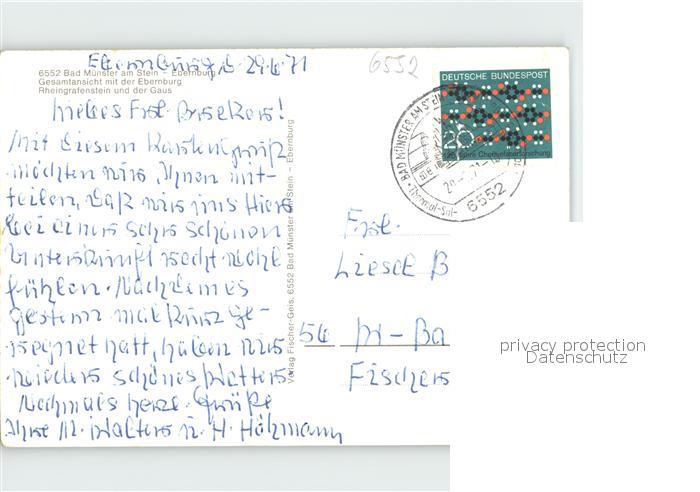 Ebernburg, d. 29.6.71
6552
6552 Bad Münster am Stein – Ebernburg
Gesamtansicht mit der Ebernburg
Rheingrafenstein und der Gaus
Liebes Frl.
Mit diesem Kartengruß
möchten wir Ihnen mit-
teilen, daß wir uns hier
bei einer sehr schönen
Unterkunft recht wohl
fühlen. Nachdem es
gestern mal kurz ge-
regnet hatt, haben wir
wieder schönes Wetter.
Nochmals herzl. Grüße
Ihre M. Walter u. H. Holzmann
Verlag Fischer-Geis, 6552 Bad Münster am Stein – Ebernburg
DEUTSCHE BUNDESPOST
20
Jahre Chemiefaserforschung
BAD MÜNSTER AM STEIN
Thermal-Sol-
6552
Frl.
Liesel B
56 W-Ba
Fischers
privacy protection
Datenschutz